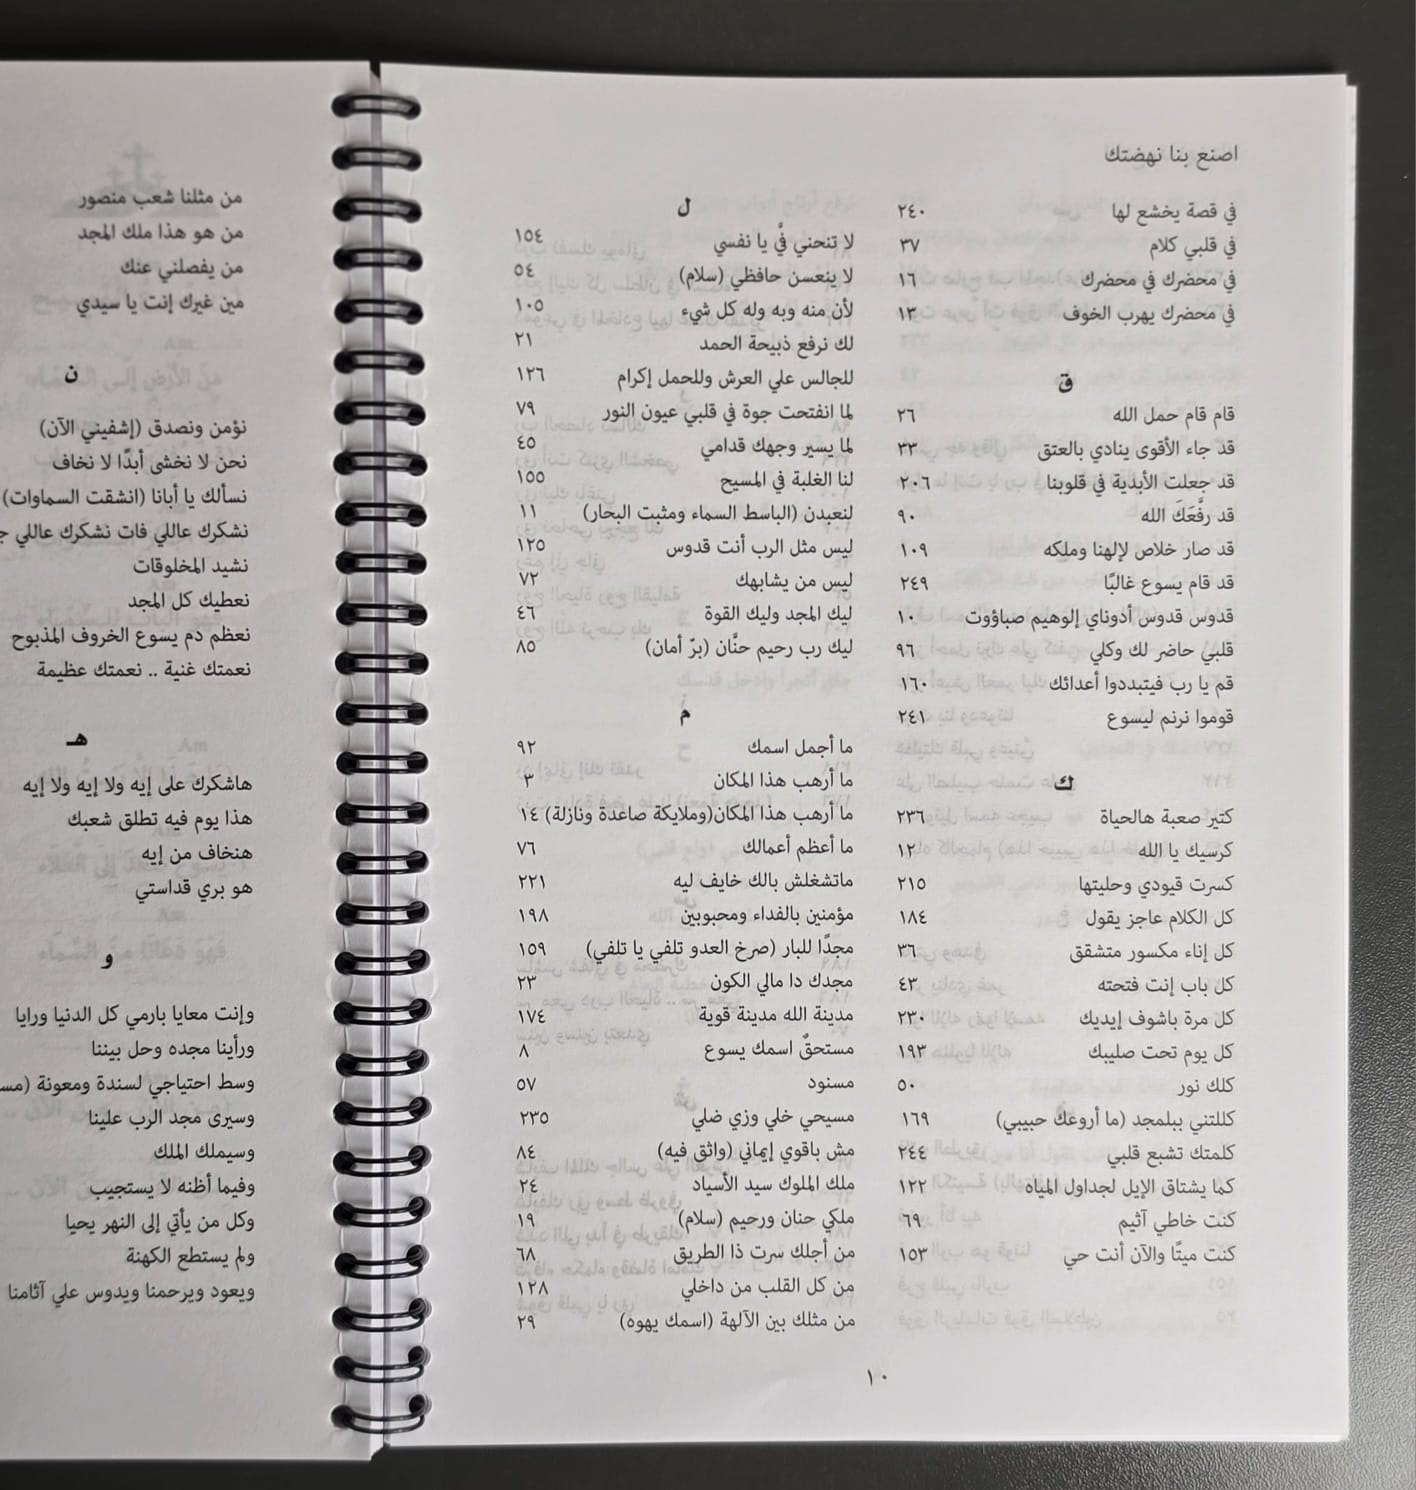 اصنع بنا نهضتك
في قصة يخشع لها ٢٤٠
في قلبي كلام ٣٧
في محضرك في محضرك ١٦
في محضرك يهرب الخوف ١٣
ق
قام قام حمل الله ٢٦
قد جاء الأقوى ينادي بالعتق ٣٣
قد جعلت الأبدية في قلوبنا ٢٠٦
قد رفَّعَكَ الله ٩٠
قد صار خلاص لإلهنا وملكه ١٠٩
قد قام يسوع غالبًا ٢٤٩
قدوس قدوس أدوناي إلوهيم صباؤوت ١٠
قلبي حاضر لك وكلي ٩٦
قم يا رب فيتبددوا أعدائك ١٦٠
قوموا نرنم ليسوع ٢٤١
ك
كتير صعبة هالحياة ٢٣٦
كرسيك يا الله ١٢
كسرت قيودي وحليتها ٢١٥
كل الكلام عاجز يقول ١٨٤
كل إناء مكسور متشقق ٣٦
كل باب إنت فتحته ٤٣
كل مرة باشوف إيديك ٢٣٠
كل يوم تحت صليبك ١٩٣
كلك نور ٥٠
كللتني ببلمجد (ما أروعك حبيبي) ١٦٩
كلمتك تشبع قلبي ٢٤٤
كما يشتاق الإيل لجداول المياه ١٢٢
كنت خاطي آثيم ٦٩
كنت ميتًا والآن أنت حي ١٥٣
ل
لا تنحني فيَّ يا نفسي ١٥٤
لا ينعسن حافظي (سلام) ٥٤
لأن منه وبه وله كل شيء ١٠٥
لك نرفع ذبيحة الحمد ٢١
للجالس علي العرش وللحمل إكرام ١٢٦
لما انفتحت جوة في قلبي عيون النور ٧٩
لما يسير وجهك قدامي ٤٥
لنا الغلبة في المسيح ١٥٥
لنعبدن (الباسط السماء ومثبت البحار) ١١
ليس مثل الرب أنت قدوس ١٢٥
ليس من يشابهك ٧٢
ليك المجد وليك القوة ٤٦
ليك رب رحيم حنَّان (برّ أمان) ٨٥
م
ما أجمل اسمك ٩٢
ما أرهب هذا المكان ٣
ما أرهب هذا المكان(وملايكة صاعدة ونازلة) ١٤
ما أعظم أعمالك ٧٦
ماتشغلش بالك خايف ليه ٢٢١
مؤمنين بالفداء ومحبوبين ١٩٨
مجدًا للبار (صرخ العدو تلفي يا تلفي) ١٥٩
مجدك دا مالي الكون ٢٣
مدينة الله مدينة قوية ١٧٤
مستحقٌ اسمك يسوع ٨
مسنود ٥٧
مسيحي خلي وزي ضلي ٢٣٥
مش باقوي إيماني (واثق فيه) ٨٤
ملك الملوك سيد الأسياد ٢٤
ملكي حنان ورحيم (سلام) ١٩
من أجلك سرت ذا الطريق ٦٨
من كل القلب من داخلي ١٢٨
من مثلك بين الآلهة (اسمك يهوه) ٢٩
١٠
من مثلنا شعب منصور
من هو هذا ملك المجد
من يفصلني عنك
مين غيرك إنت يا سيدي
ن
نؤمن ونصدق (إشفيني الآن)
نحن لا نخشى أبدًا لا نخاف
نسألك يا أبانا (انشقت السماوات)
نشكرك عاللي فات نشكرك عاللي
نشيد المخلوقات
نعطيك كل المجد
نعظم دم يسوع الخروف المذبوح
نعمتك غنية .. نعمتك عظيمة
هـ
هاشكرك على إيه ولا إيه ولا إيه
هذا يوم فيه تطلق شعبك
هنخاف من إيه
هو بري قداستي
و
وإنت معايا بارمي كل الدنيا ورايا
ورأينا مجده وحل بيننا
وسط احتياجي لسندة ومعونة
وسيرى مجد الرب علينا
وسيملك الملك
وفيما أظنه لا يستجيب
وكل من يأتي إلى النهر يحيا
ولم يستطع الكهنة
ويعود ويرحمنا ويدوس علي آثامنا